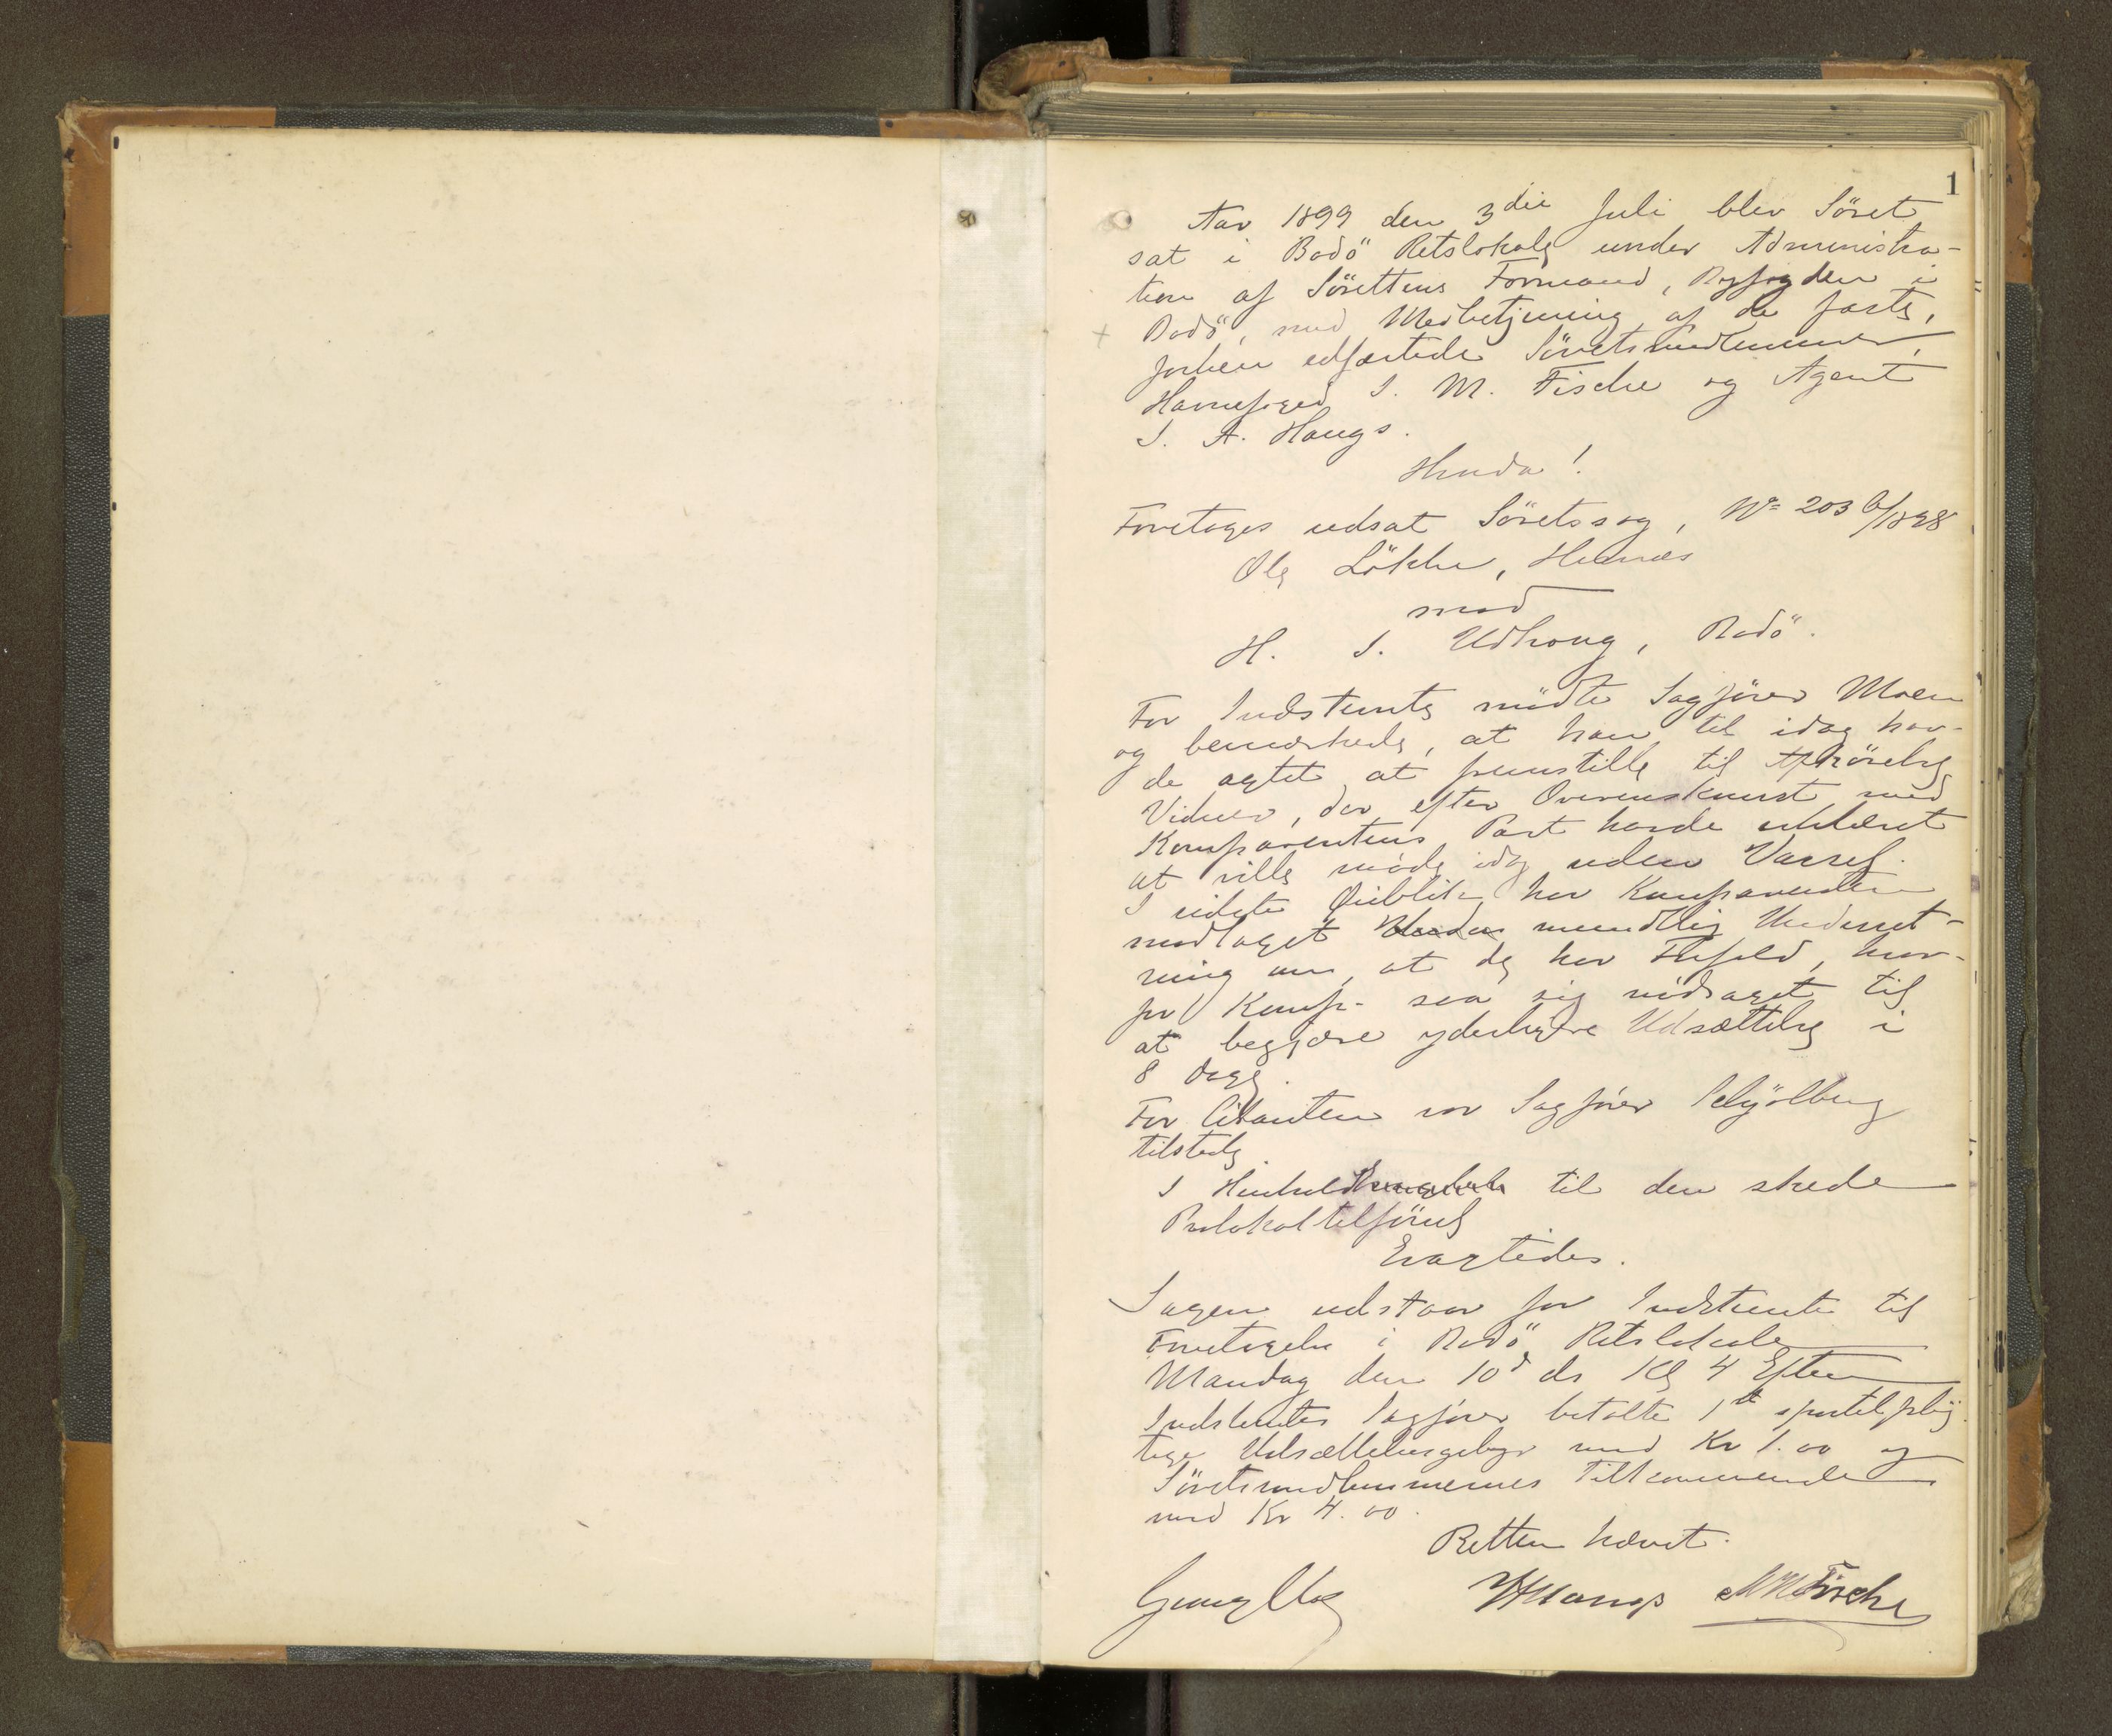 1
Aar 1899 den 3die Juli blev Söret
sat i Bodö Retslokale under Administra-
tion af Sörettens Formand, Byfogden i
Bodö, med Medbetjening af de faste,
forhen edfæstede Söretsmedlemmer,
Havnefoged J. M. Fische og Agent
J. A. Haugs.
Hvorda!
Foretoges udsat Söretssag, No 203 b/1898
Ole Lökke, Hemnæs
mod
H. J. Udhoug, Bodö.
For Indstevnte mödte Sagförer Moen
og bemærkede, at han til idag hav-
de agtet at fremstille til Afhörelse
Vidner, der efter Overenskomst med
Komparentens Part havde erklæret
at ville möde idag uden Varsel.
I sidste Öieblik har Komparenten
modtaget mundtlig Underret-
ning om, at de har Forfald, hvor-
for Komp. saa sig nödsaget til
at begjære yderligere Udsættelse i
8 Dage.
For Citanten var Sagförer Schjölberg
tilstede.
I Henhold til den skede
Protokoltilförsel
Eragtedes.
Sagen udstaar for Indstevnte til
Foretagelse i Bodö Retslokale
Mandag den 10de ds Kl 4 Efterm
Indstevntes Sagförer betalte 1ste sportelplig-
tige Udsættelsesgebyr med Kr 1.00 og
Söretsmedlemmernes Tilkommende
med Kr 4.00.
Retten hævet.
JAHaugs JMFische